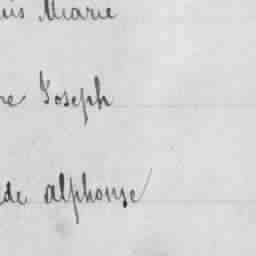 uis Marie
re Joseph
de alphonse